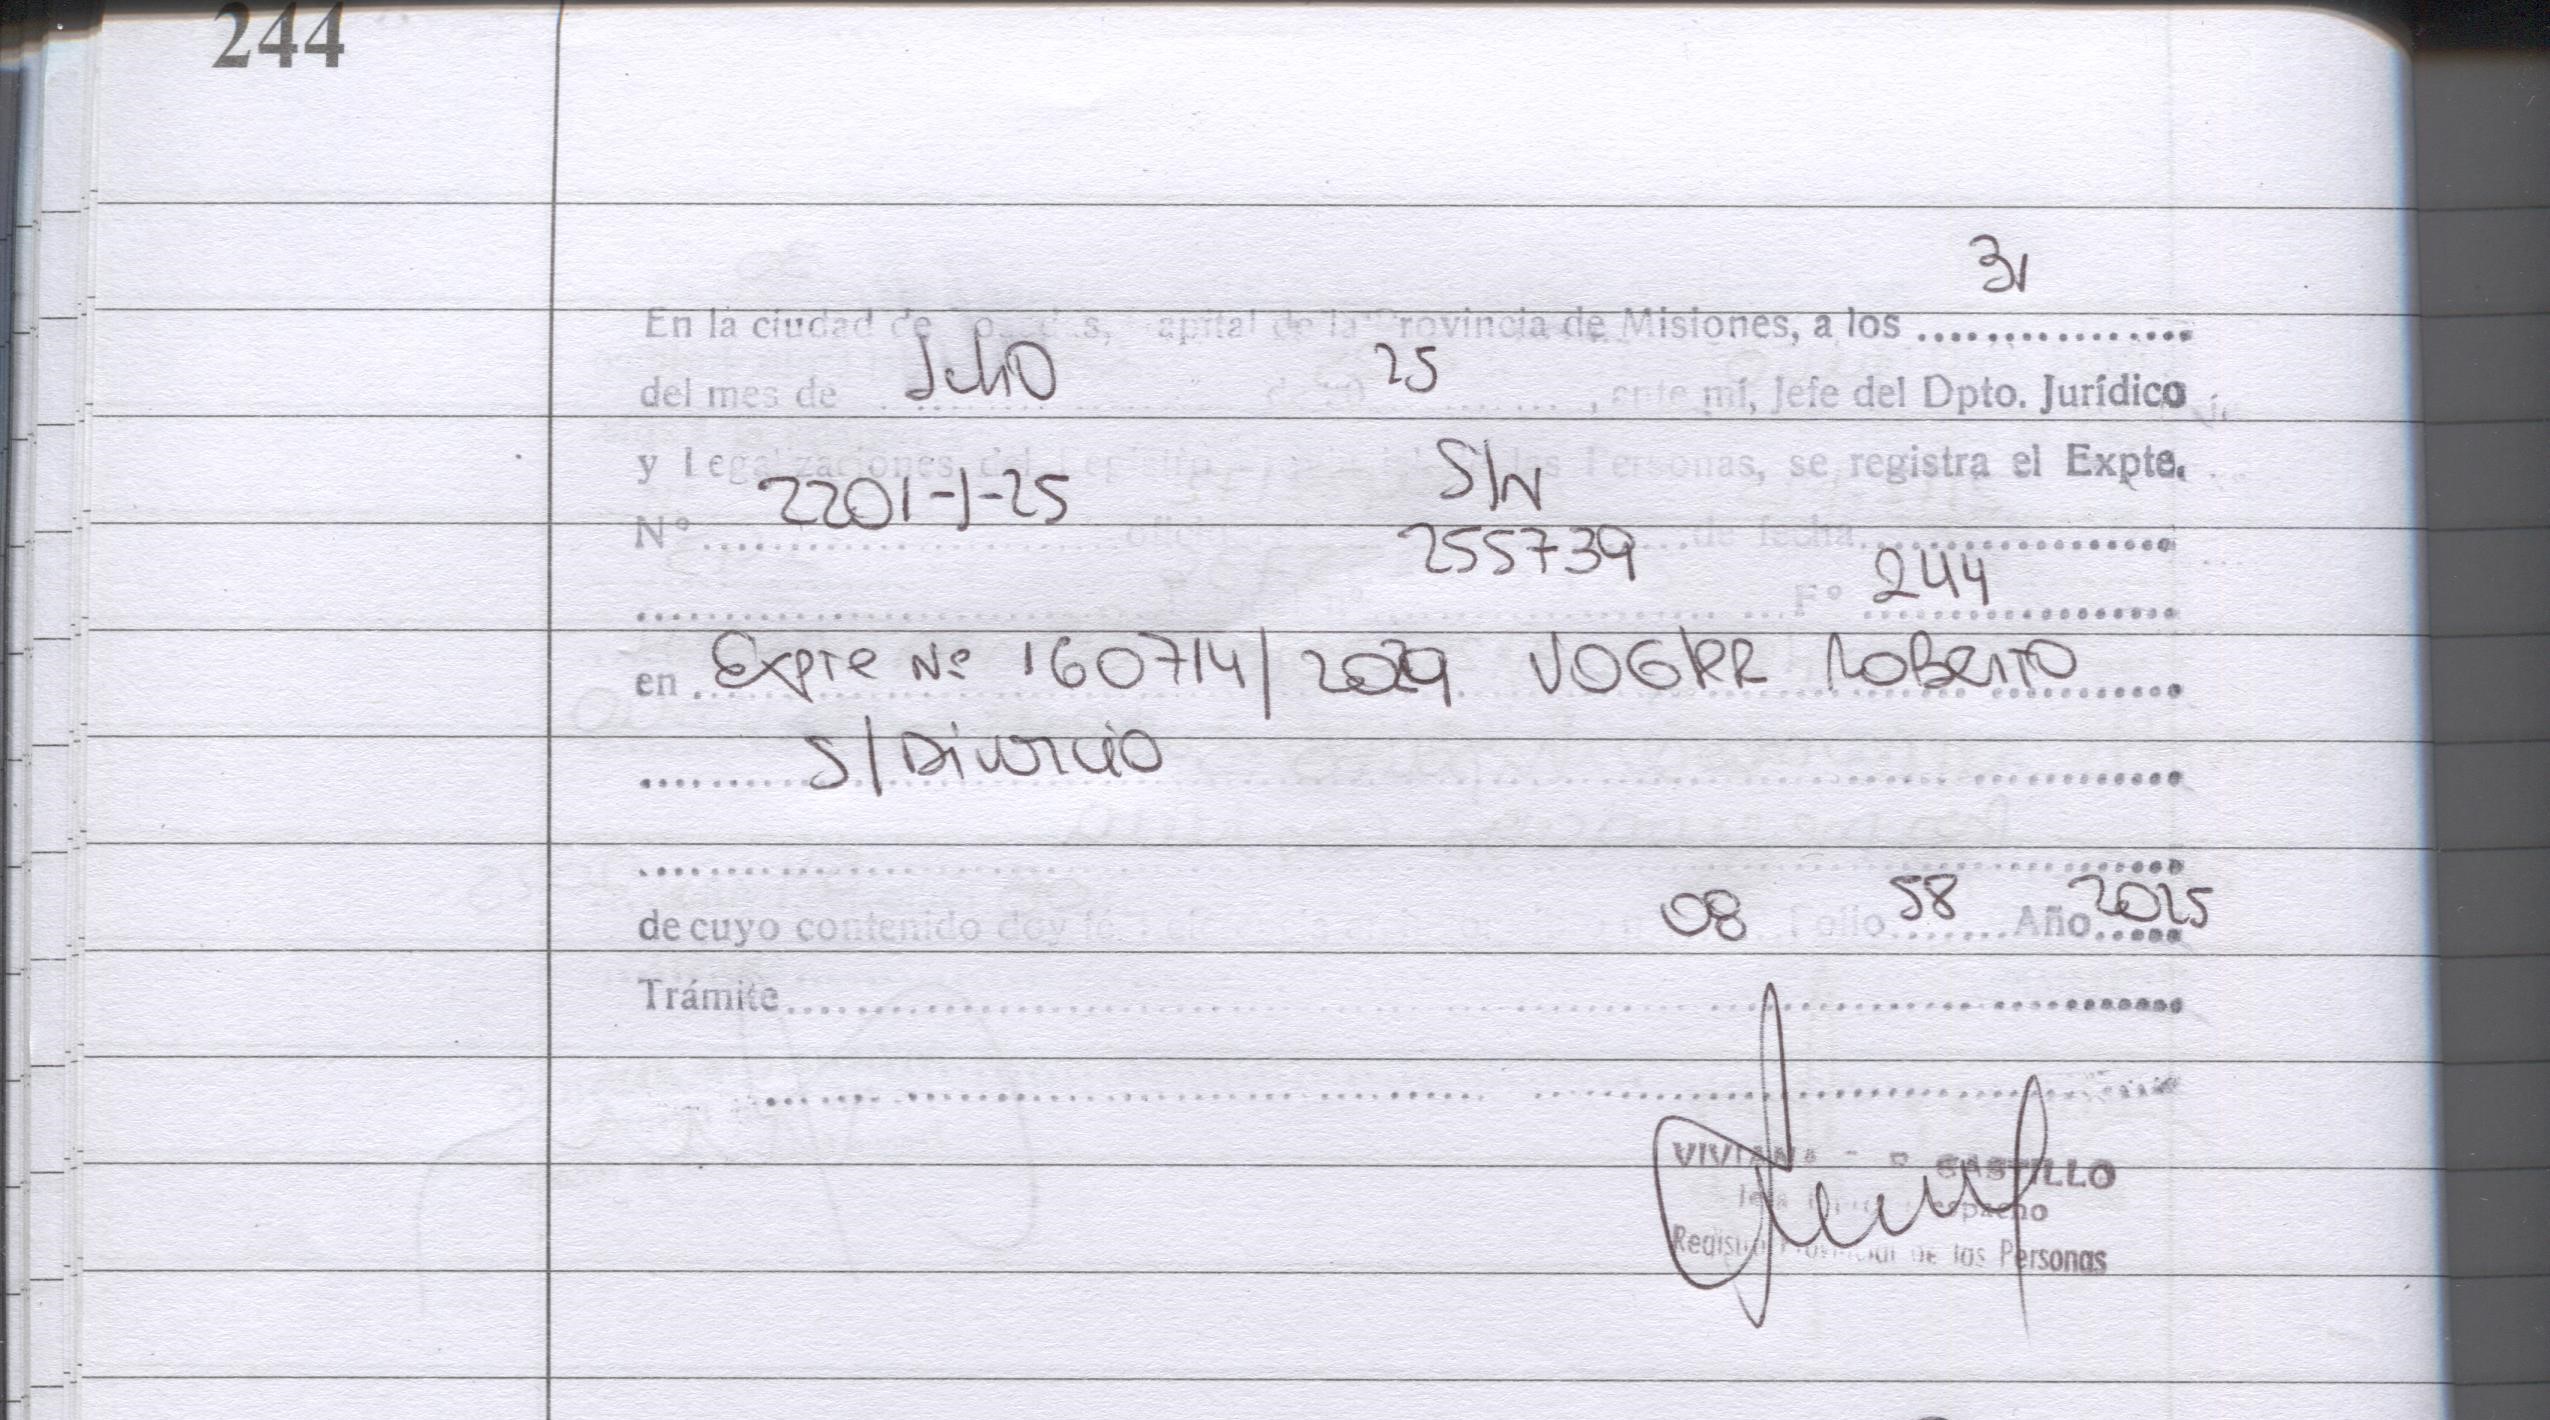 244
31
En la ciudad de Posadas, Capital de la Provincia de Misiones, a los ................
Julio 25
del mes de ........ de 20 ........, ante mí, Jefe del Dpto. Jurídico
y Legalizaciones del Registro Provincial de las Personas, se registra el Expte.
2201-J-25 S/N
Nº ........ oficio ........ de fecha ........
255739 244
........ Fº ........
en Expte Nº 160714/2024 VOGKR Roberto
S/ Divorcio
08 58 2025
de cuyo contenido doy fé. Folio ....... Año .....
Trámite ........
VIVIANA CASTILLO
Despacho
Registro Provincial de las Personas